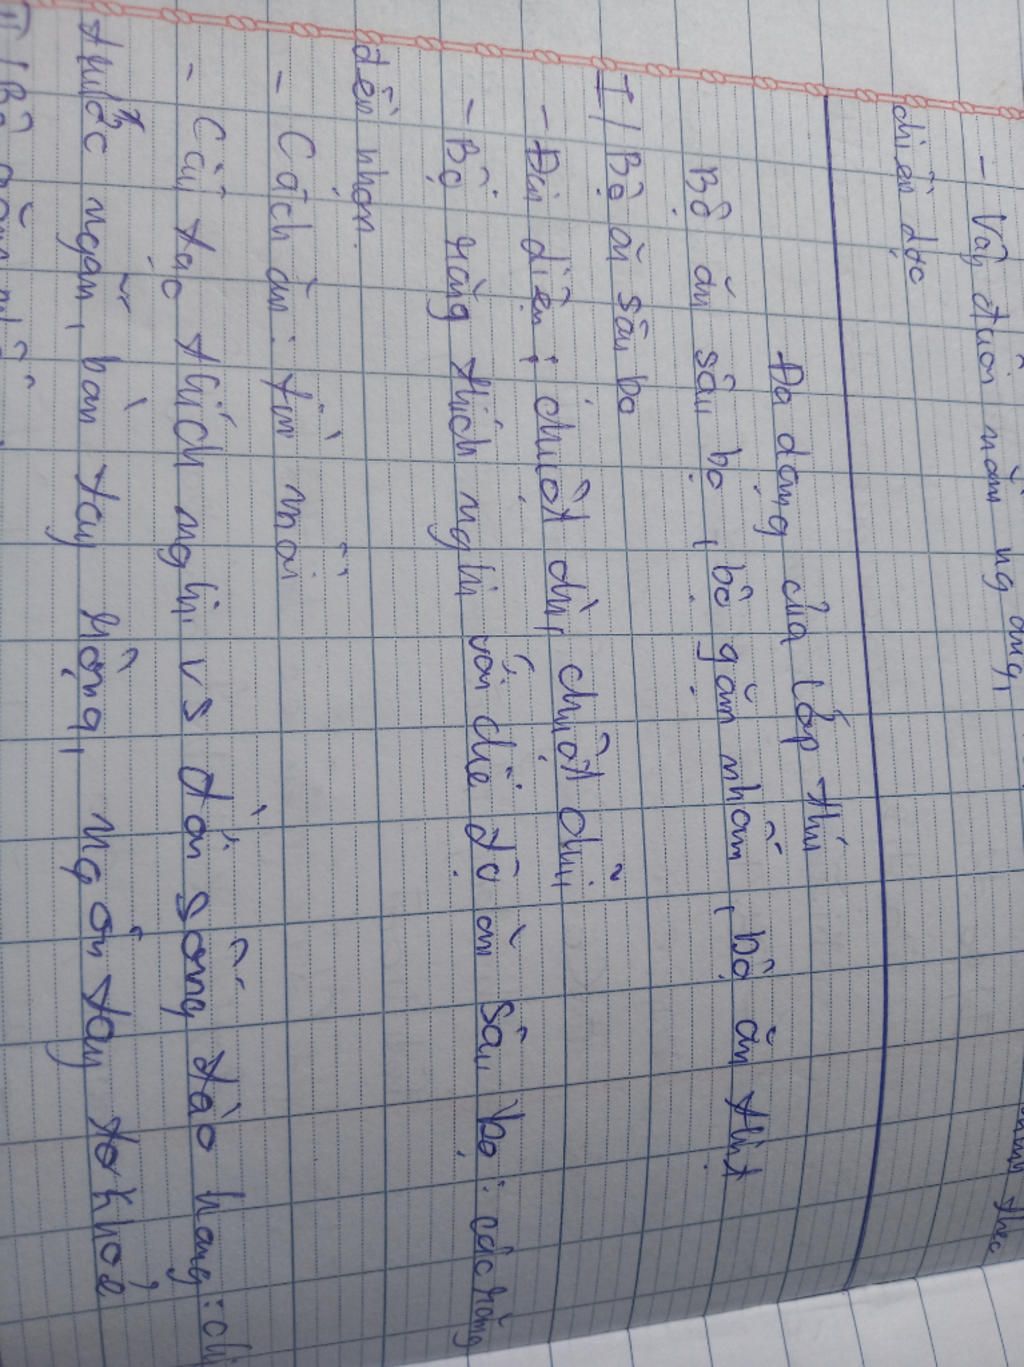 - Vây đuôi nằm ngang,
chiều dọc
Đa dạng của lớp thú
Bộ ăn sâu bọ, bộ gặm nhấm, bộ ăn thịt
I/ Bộ ăn sâu bo
- Đại diện: chuột chù, chuột chũi
- Bộ răng thích nghi với chế độ ăn sâu bọ: các răng
đều nhọn.
- Cách ăn: tìm mồi
- Cấu tạo thích nghi vs đời sống đào hang: chi
trước ngắn, bàn tay rộng, ngón tay to khoẻ
II/ Bộ